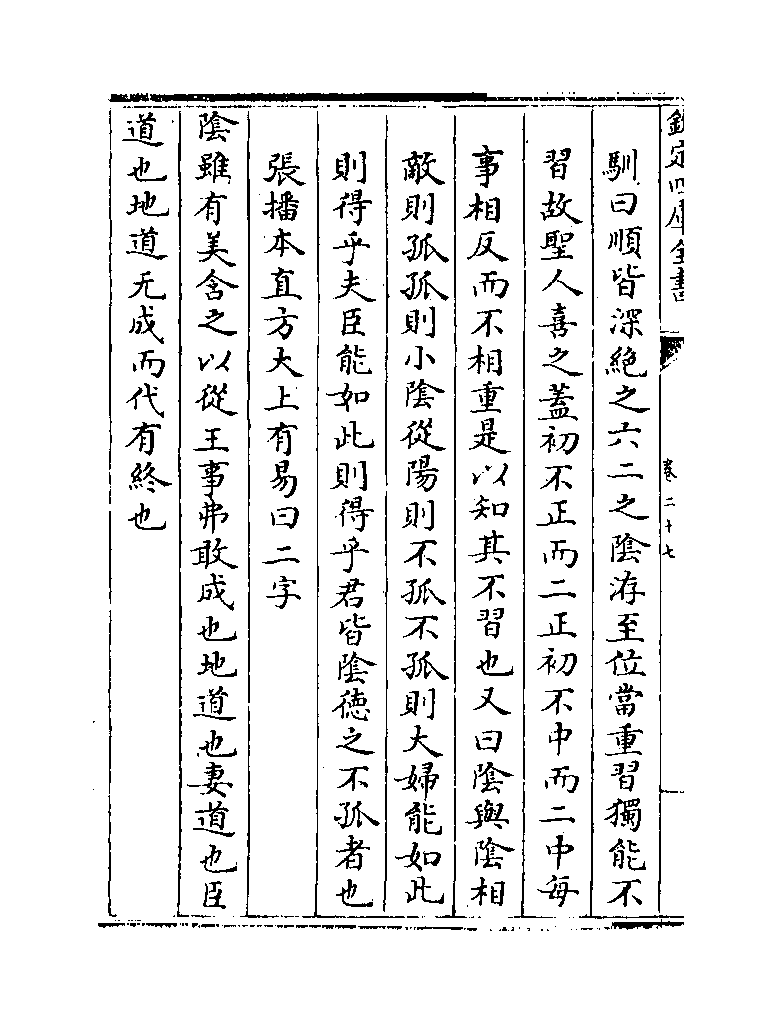 欽定四庫全書
卷二十七
馴曰順皆深絶之六二之陰洊至位當重習獨能不
習故聖人喜之蓋初不正而二正初不中而二中每
事相反而不相重是以知其不習也又曰陰與陰相
敵則孤孤則小陰從陽則不孤不孤則大婦能如此
則得乎夫臣能如此則得乎君皆陰徳之不孤者也
張播本直方大上有易曰二字
陰雖有美含之以從王事弗敢成也地道也妻道也臣
道也地道无成而代有終也